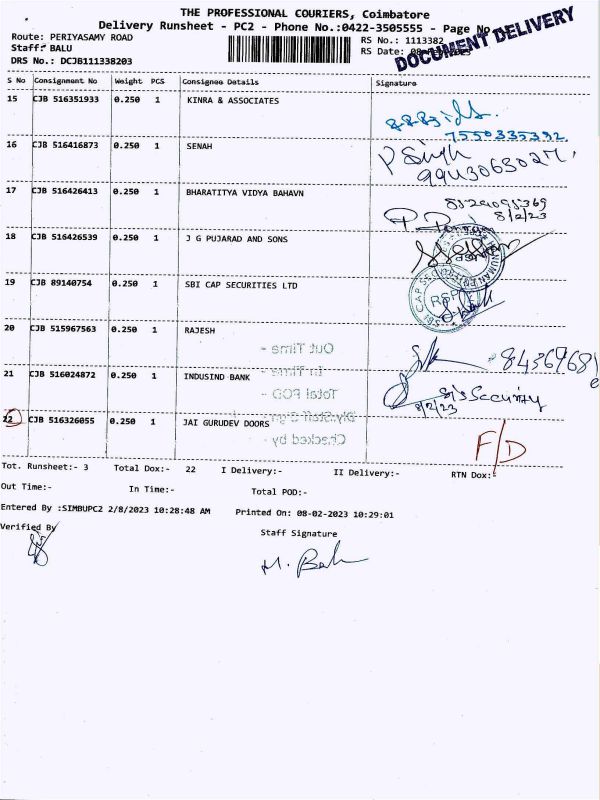 THE PROFESSIONAL COURIERS, Coimbatore
Delivery Runsheet - PC2 - Phone No.:0422-3505555 - Page No
DOCUMENT DELIVERY
Route: PERIYASAMY ROAD
RS No.: 1113382
Staff: BALU
RS Date:
DRS No.: DCJB111338203
S No Consignment No Weight PCS Consignee Details Signature
15 CJB 516351933 0.250 1 KINRA & ASSOCIATES
7550335392
16 CJB 516416873 0.250 1 SENAH
P Singh
9943063027
17 CJB 516426413 0.250 1 BHARATITYA VIDYA BAHAVN
8/2/23
18 CJB 516426539 0.250 1 J G PUJARAD AND SONS
19 CJB 89140754 0.250 1 SBI CAP SECURITIES LTD
SBI CAP SEC
20 CJB 515967563 0.250 1 RAJESH
Out Time -
In Time -
21 CJB 516024872 0.250 1 INDUSIND BANK
Total POD -
8/2/23 Security
22 CJB 516326055 0.250 1 JAI GURUDEV DOORS
F/D
Checked by -
Tot. Runsheet:- 3 Total Dox:- 22 I Delivery:- II Delivery:- RTN Dox:-
Out Time:- In Time:- Total POD:-
Entered By :SIMBUPC2 2/8/2023 10:28:48 AM Printed On: 08-02-2023 10:29:01
Verified By Staff Signature